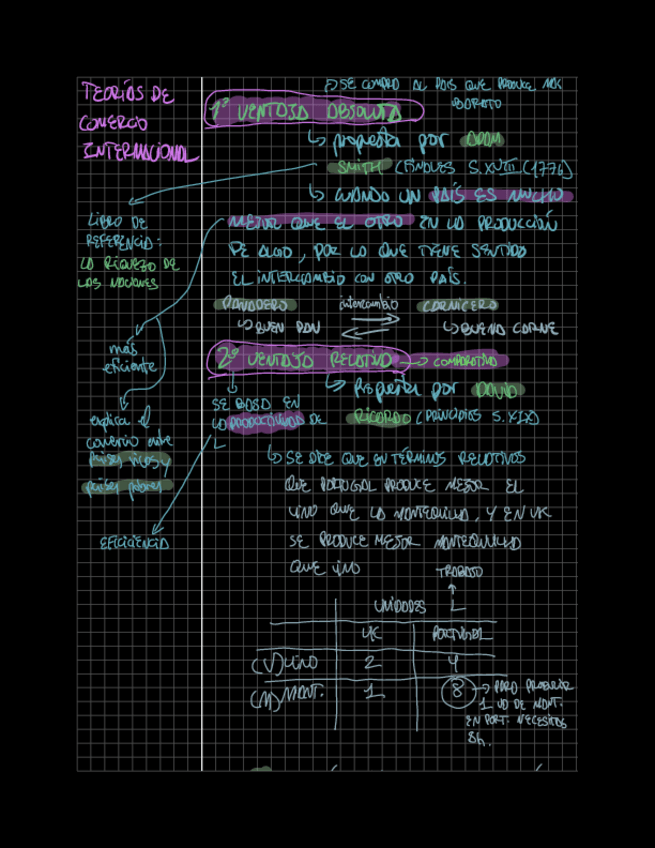 TEORÍAS DE
COMERCIO
INTERNACIONAL
→ SE COMPRA AL PAÍS QUE PRODUCE MÁS
BARATO
1º VENTAJA ABSOLUTA
↳ propuesta por ADAM
SMITH (FINALES S.XVIII (1776)
↳ CUANDO UN PAÍS ES MUCHO
MEJOR QUE EL OTRO EN LA PRODUCCIÓN
DE ALGO, POR LO QUE TIENE SENTIDO
EL INTERCAMBIO CON OTRO PAÍS.
LIBRO DE
REFERENCIA:
LA RIQUEZA DE
LAS NACIONES
más
eficiente
explica el
comercio entre
países ricos y
países pobres
EFICIENCIA
PANADERO intercambio CARNICERO
↳ BUEN PAN ↳ BUENA CARNE
2º VENTAJA RELATIVA → COMPARATIVA
↳ Propuesta por DAVID
RICARDO (PRINCIPIOS S.XIX)
SE BASA EN
LA PRODUCTIVIDAD DE
L
↳ SE DICE QUE EN TÉRMINOS RELATIVOS
QUE PORTUGAL PRODUCE MEJOR EL
VINO QUE LA MANTEQUILLA, Y EN UK
SE PRODUCE MEJOR MANTEQUILLA
QUE VINO
TRABAJO
↑
UNIDADES L
UK PORTUGAL
(V) VINO 2 4
(M) MANT. 1 8 → PARA PRODUCIR
1 UD DE MANT.
EN PORT. NECESITAS
8h.